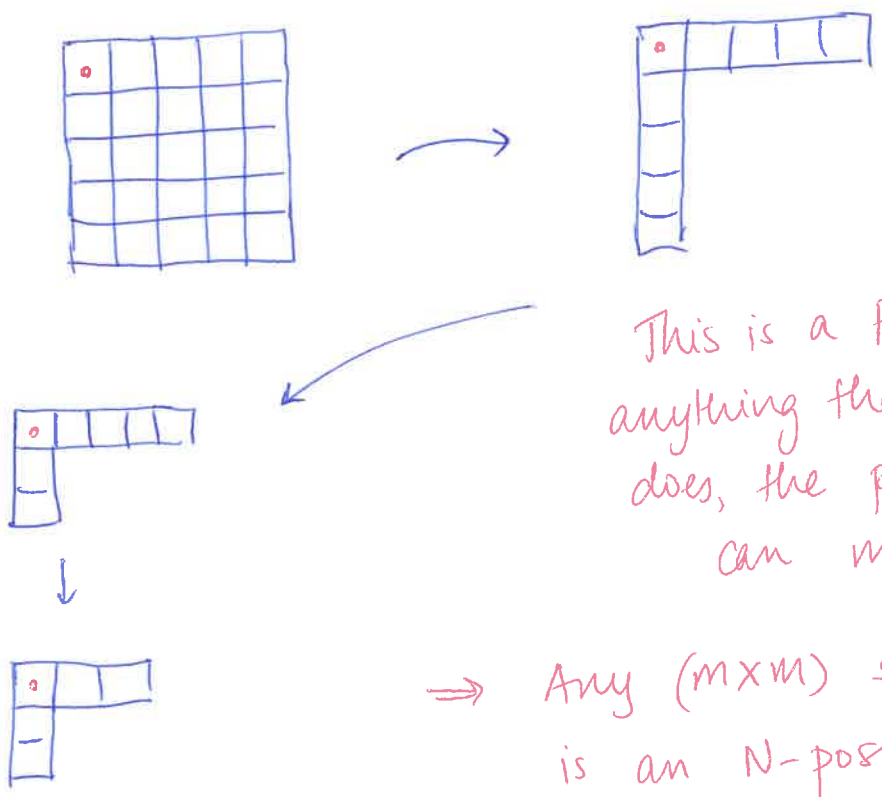 This is a
anything
does, the
can
⇒ Any (m×m)
is an N-pos